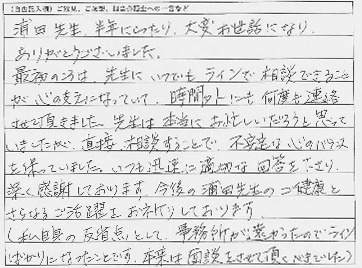 (自由記入欄)ご意見、ご感想、担当弁護士への一言など
浦田先生、半年にわたり、大変お世話になり
ありがとうございました。
最初のころは、先生にいつでもラインで相談できること
が心の支えになっていて、1時間ットにも何度も連絡
させて頂きました。先生は本当にお忙しいだろうと思って
いましたが、直接相談することで不安な心のバランス
を保っていました。いつも迅速に適切な回答を下さり
深く感謝しております。今後の浦田先生のご健康と
さらなるご活躍をお祈りしております。
(私自身の反省点として、事務所が遠かったのでライン
ばかりになったことです。本来は面談をさせて頂くべきでした)